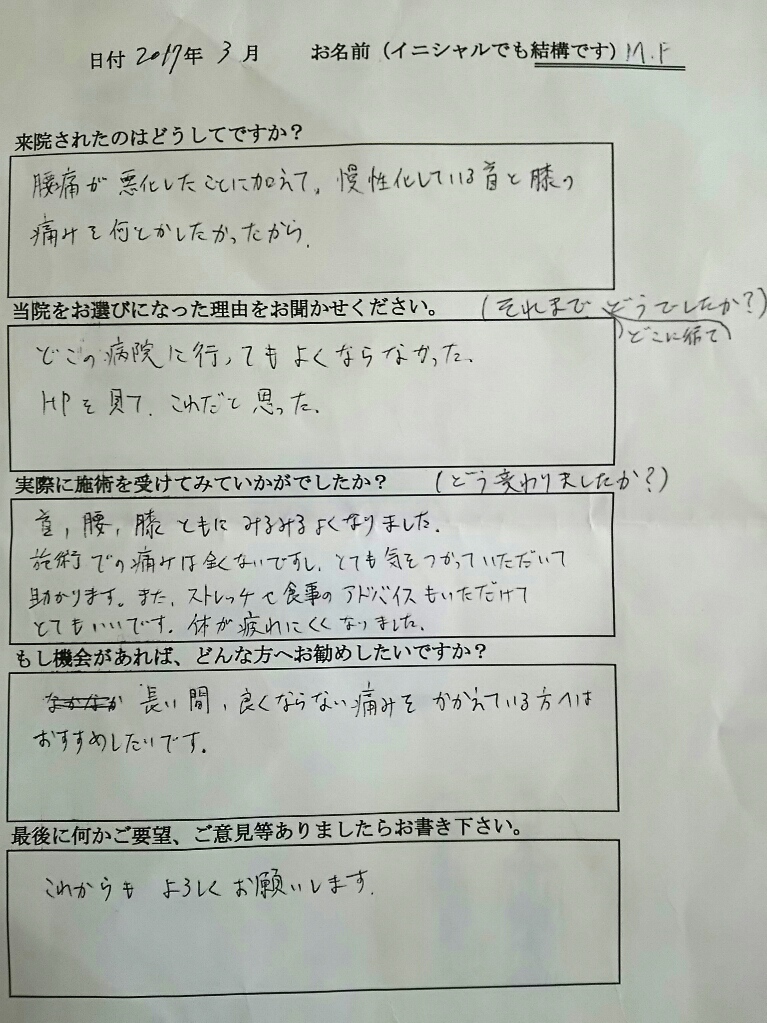 日付 2017年 3月 お名前（イニシャルでも結構です）M.F
来院されたのはどうしてですか？
腰痛が悪化したことに加えて、慢性化している首と膝の
痛みを何とかしたかったから.
当院をお選びになった理由をお聞かせください。 (それまで どうでしたか?)
どこの病院に行ってもよくならなかった.
HPを見て、これだと思った.
実際に施術を受けてみていかがでしたか？ (どう変わりましたか?)
首, 腰, 膝ともにみるみるよくなりました.
施術での痛みは全くないですし、とても気をつかっていただいて
助かります。また、ストレッチや食事のアドバイスもいただけて
とてもいいです. 体が疲れにくくなりました.
もし機会があれば、どんな方へお勧めしたいですか？
長い間, 良くならない痛みをかかえている方へは
おすすめしたいです.
最後に何かご要望、ご意見等ありましたらお書き下さい。
これからも よろしくお願いします.